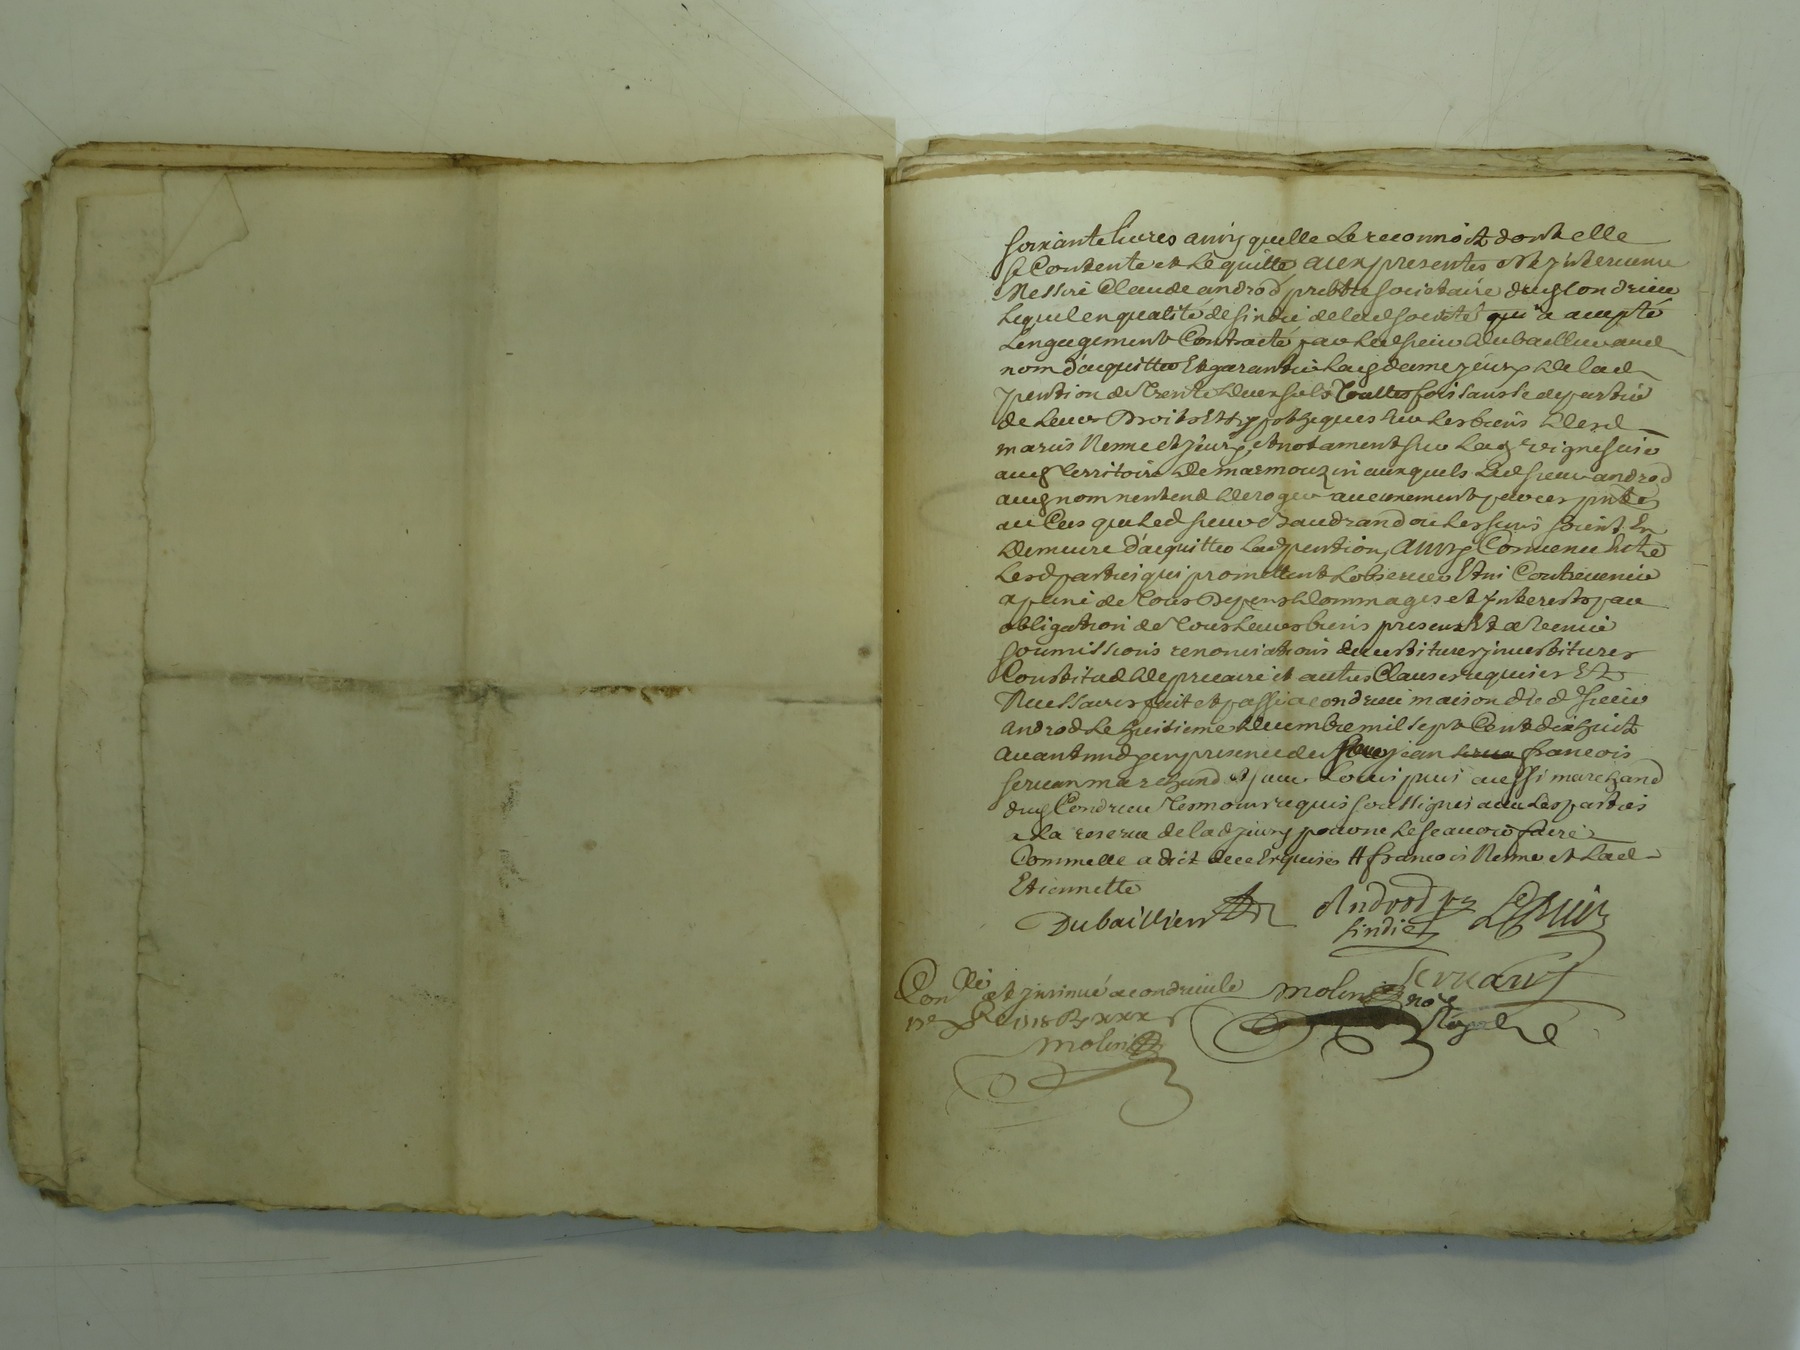 soixante livres ainsy quelle le reconnoit dont elle
se Contente et le quitte, aux presentes est Intervenu
Messire Claude androd prebtre societaire dud Condrieu
lequel en qualité de sindic de lad societé qui a accepté
lengagement Contracté par led sieur dubaillieu aud
nom d'acquitter Et garantir lad dame jeury de lad
pention de trente deux sols touttes fois sans se departir
de leurs Droits Et hypotheques sur les biens desd
mariés Reme et jeury, et notament sur lad vigne size
aud territoire de marmouzin auxquels led sieur androd
aud nom n'entend deroger aucunement par ces pntes
au Cas que led sieur Baudrand ou les siens soient En
demeure d'acquitter lad pention, ainsy Convenu Entre
lesd parties qui promettent l'observer Et ni Contrevenir
a peine de tous Depens dommages et Interests par
obligation de tous leurs biens presens Et a venir
soumissions renonciations devestitures investitures
Constitu de precaire et autres Clauses requises Et
Necessaires fait et passé a condrieu maison dud sieur
androd le huitieme decembre mil sept Cent dix huit
avant midy en presence de jean francois
servan marchand et Louis puis aussi marchand
dud Condrieu tesmoins requis soussignés avec les parties
a la reserve de lad jeury pour ne le scavoir faire
Comme elle a dict de ce Enquise # francois Reme et lad
Etiennette
Dubaillieu Androd ptre
sindic
servant
Con lé et Insinué a condrieu le
molin
molin nore
Royal